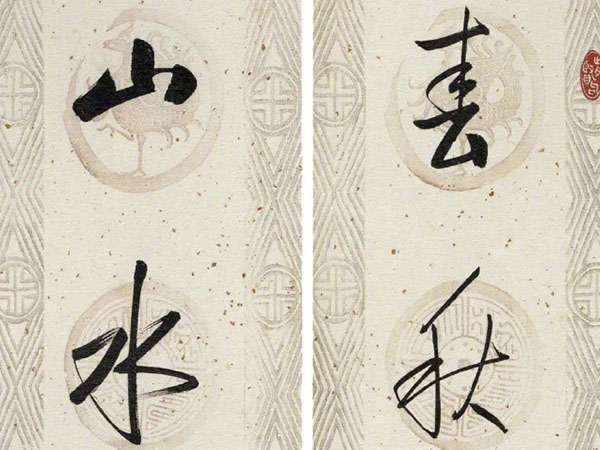 春秋
山水